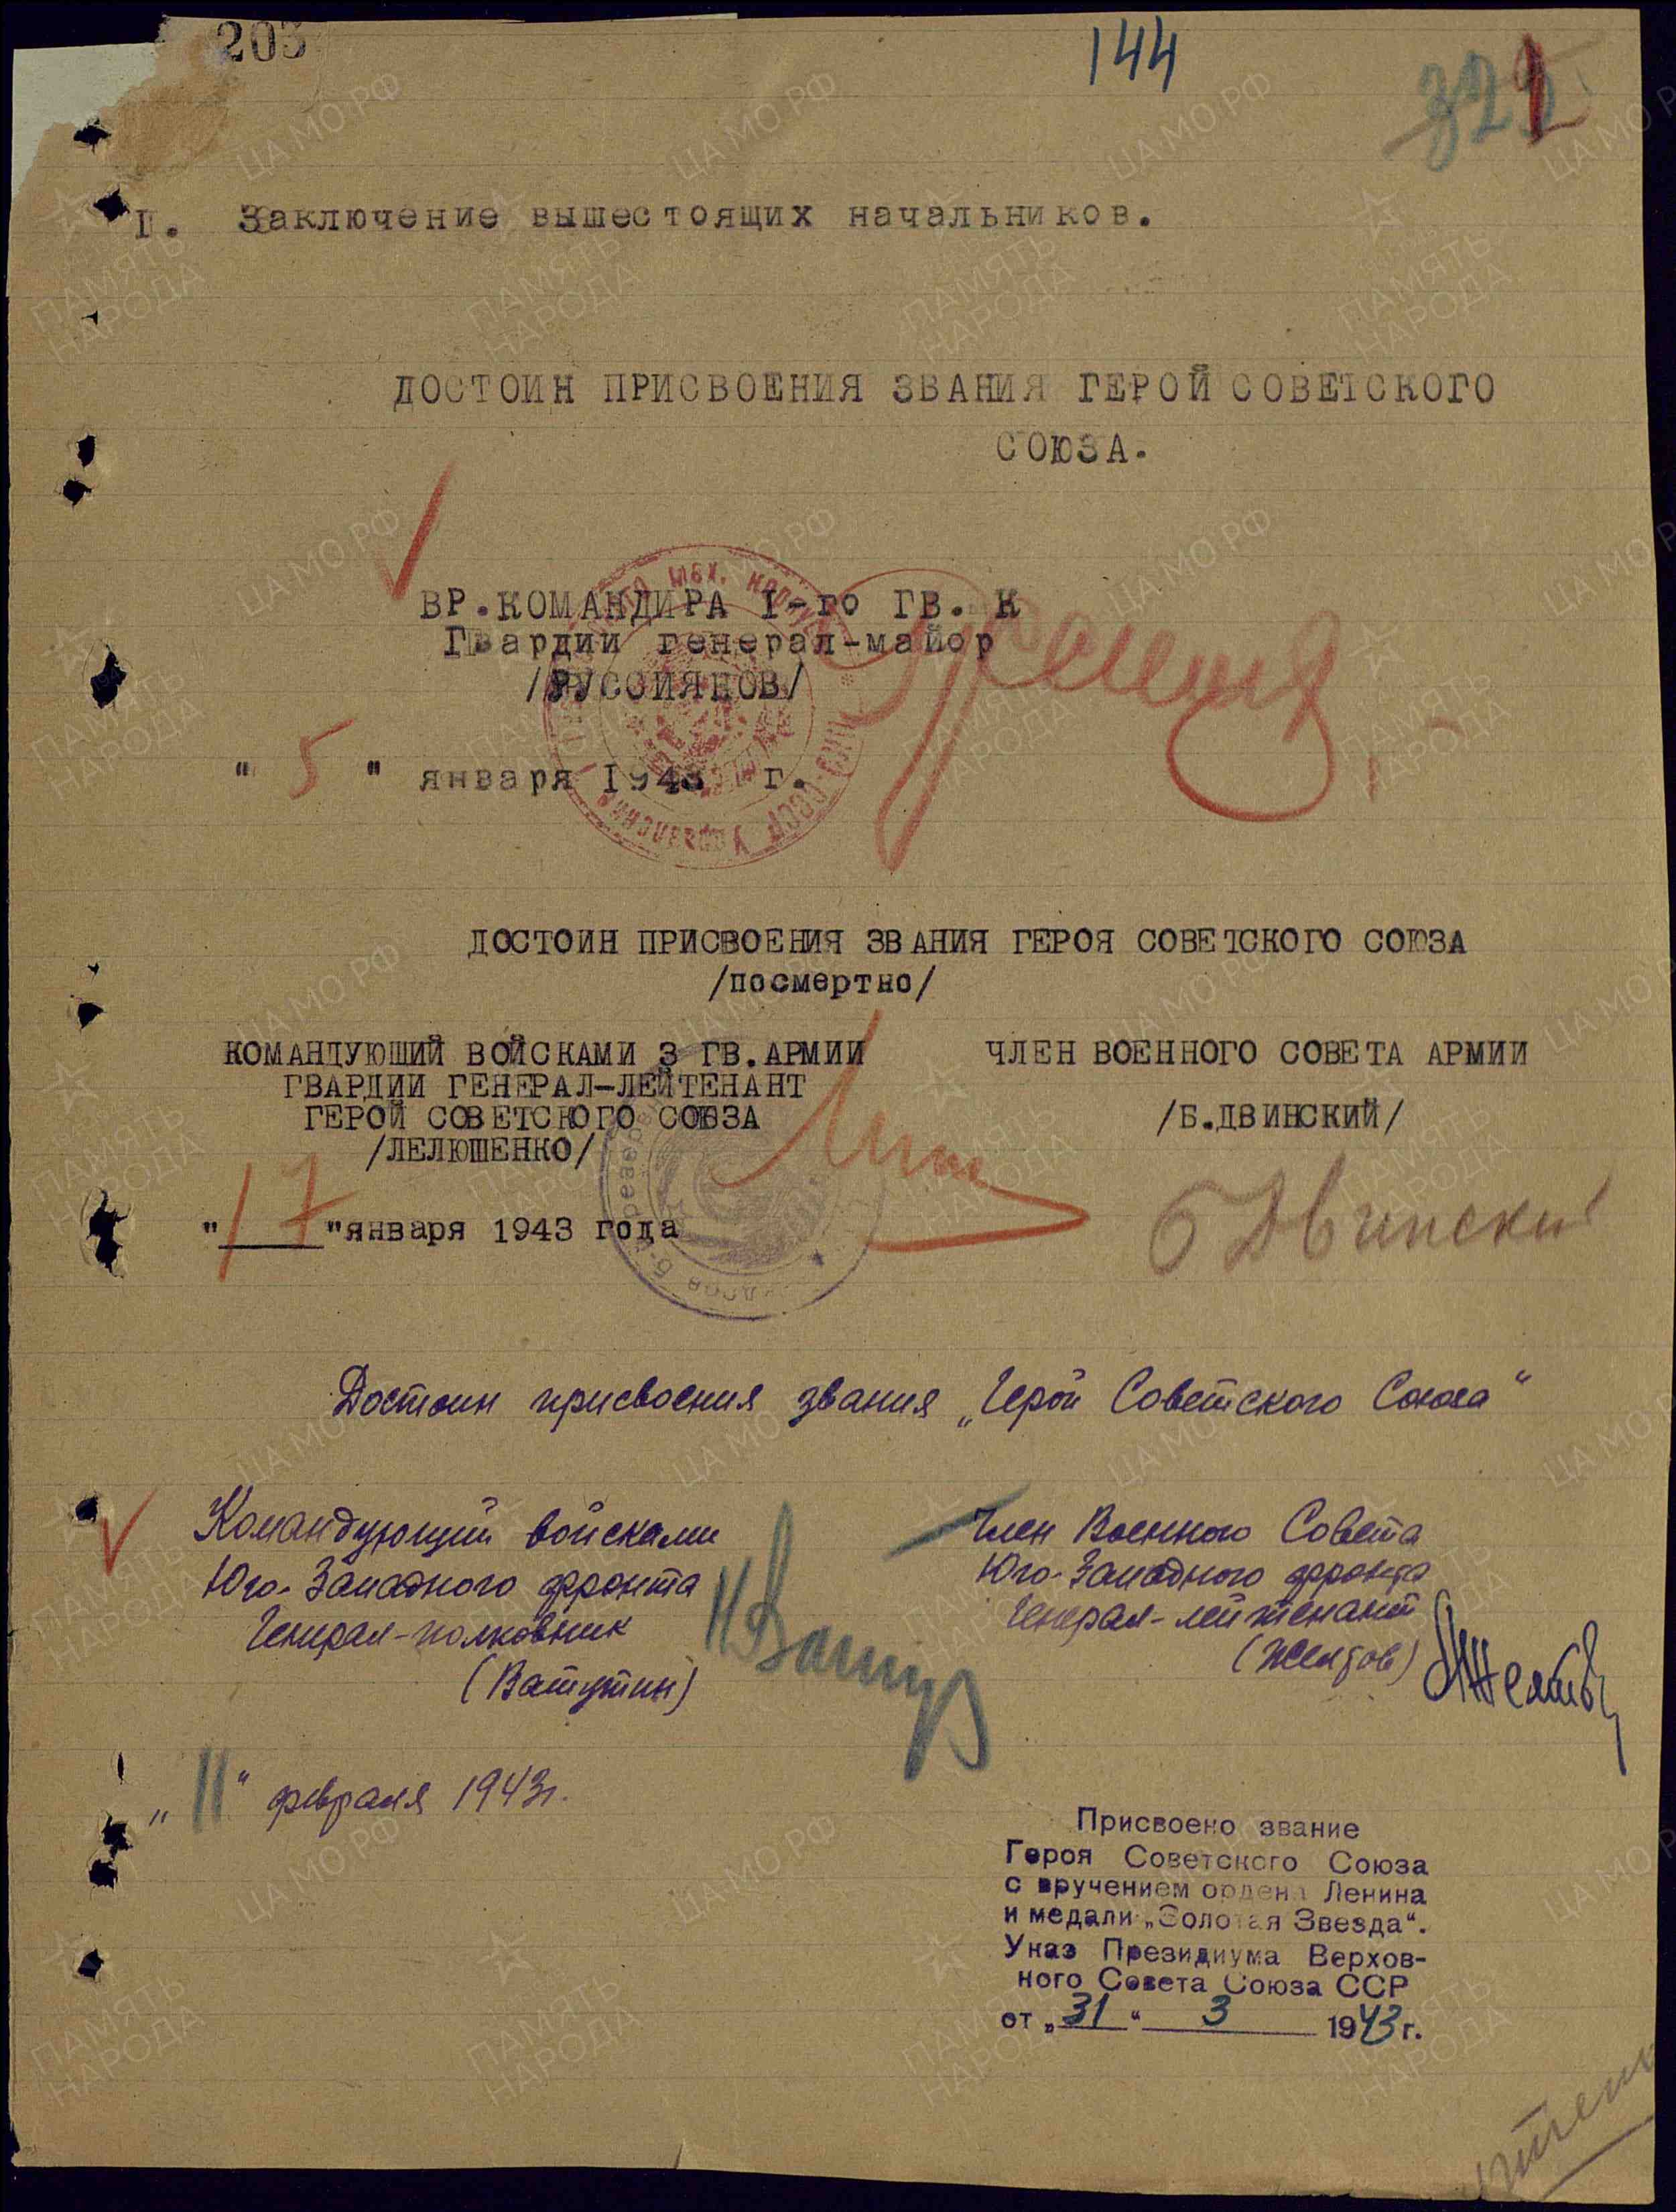 203
144
I. Заключение вышестоящих начальников.
ДОСТОИН ПРИСВОЕНИЯ ЗВАНИЯ ГЕРОЙ СОВЕТСКОГО
СОЮЗА.
ВР.КОМАНДИРА I-го ГВ. К
Гвардии генерал-майор
/РУССИЯНОВ/
" 5 " января 1943 г.
ДОСТОИН ПРИСВОЕНИЯ ЗВАНИЯ ГЕРОЯ СОВЕТСКОГО СОЮЗА
/посмертно/
КОМАНДУЮЩИЙ ВОЙСКАМИ 3 ГВ.АРМИИ
ГВАРДИИ ГЕНЕРАЛ-ЛЕЙТЕНАНТ
ГЕРОЙ СОВЕТСКОГО СОЮЗА
/ЛЕЛЮШЕНКО/
ЧЛЕН ВОЕННОГО СОВЕТА АРМИИ
/Б.ДВИНСКИЙ/
"17"января 1943 года
Б Двински
Достоин присвоения звания „Герой Советского Союза“
Командующий войсками
Юго-Западного фронта
Генерал-полковник
(Ватутин)
Член Военного Совета
Юго-Западного фронта
Генерал-лейтенант
(Желтов)
„11“ февраля 1943г.
Присвоено звание
Героя Советского Союза
с вручением ордена Ленина
и медали „Золотая Звезда“.
Указ Президиума Верхов-
ного Совета Союза ССР
от „31“ 3 1943 г.
ЦА МО РФ
ПАМЯТЬ
НАРОДА